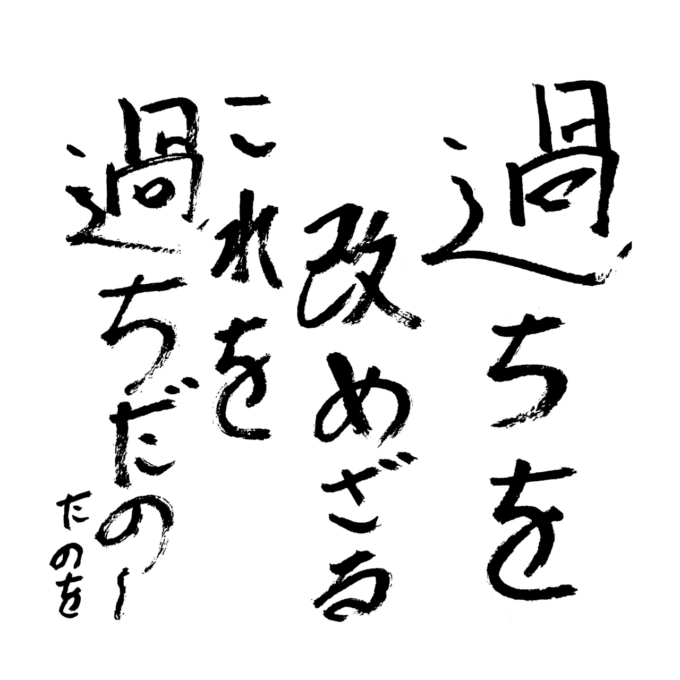 過ちを
改めざる
これを
過ちだの〜
たのを